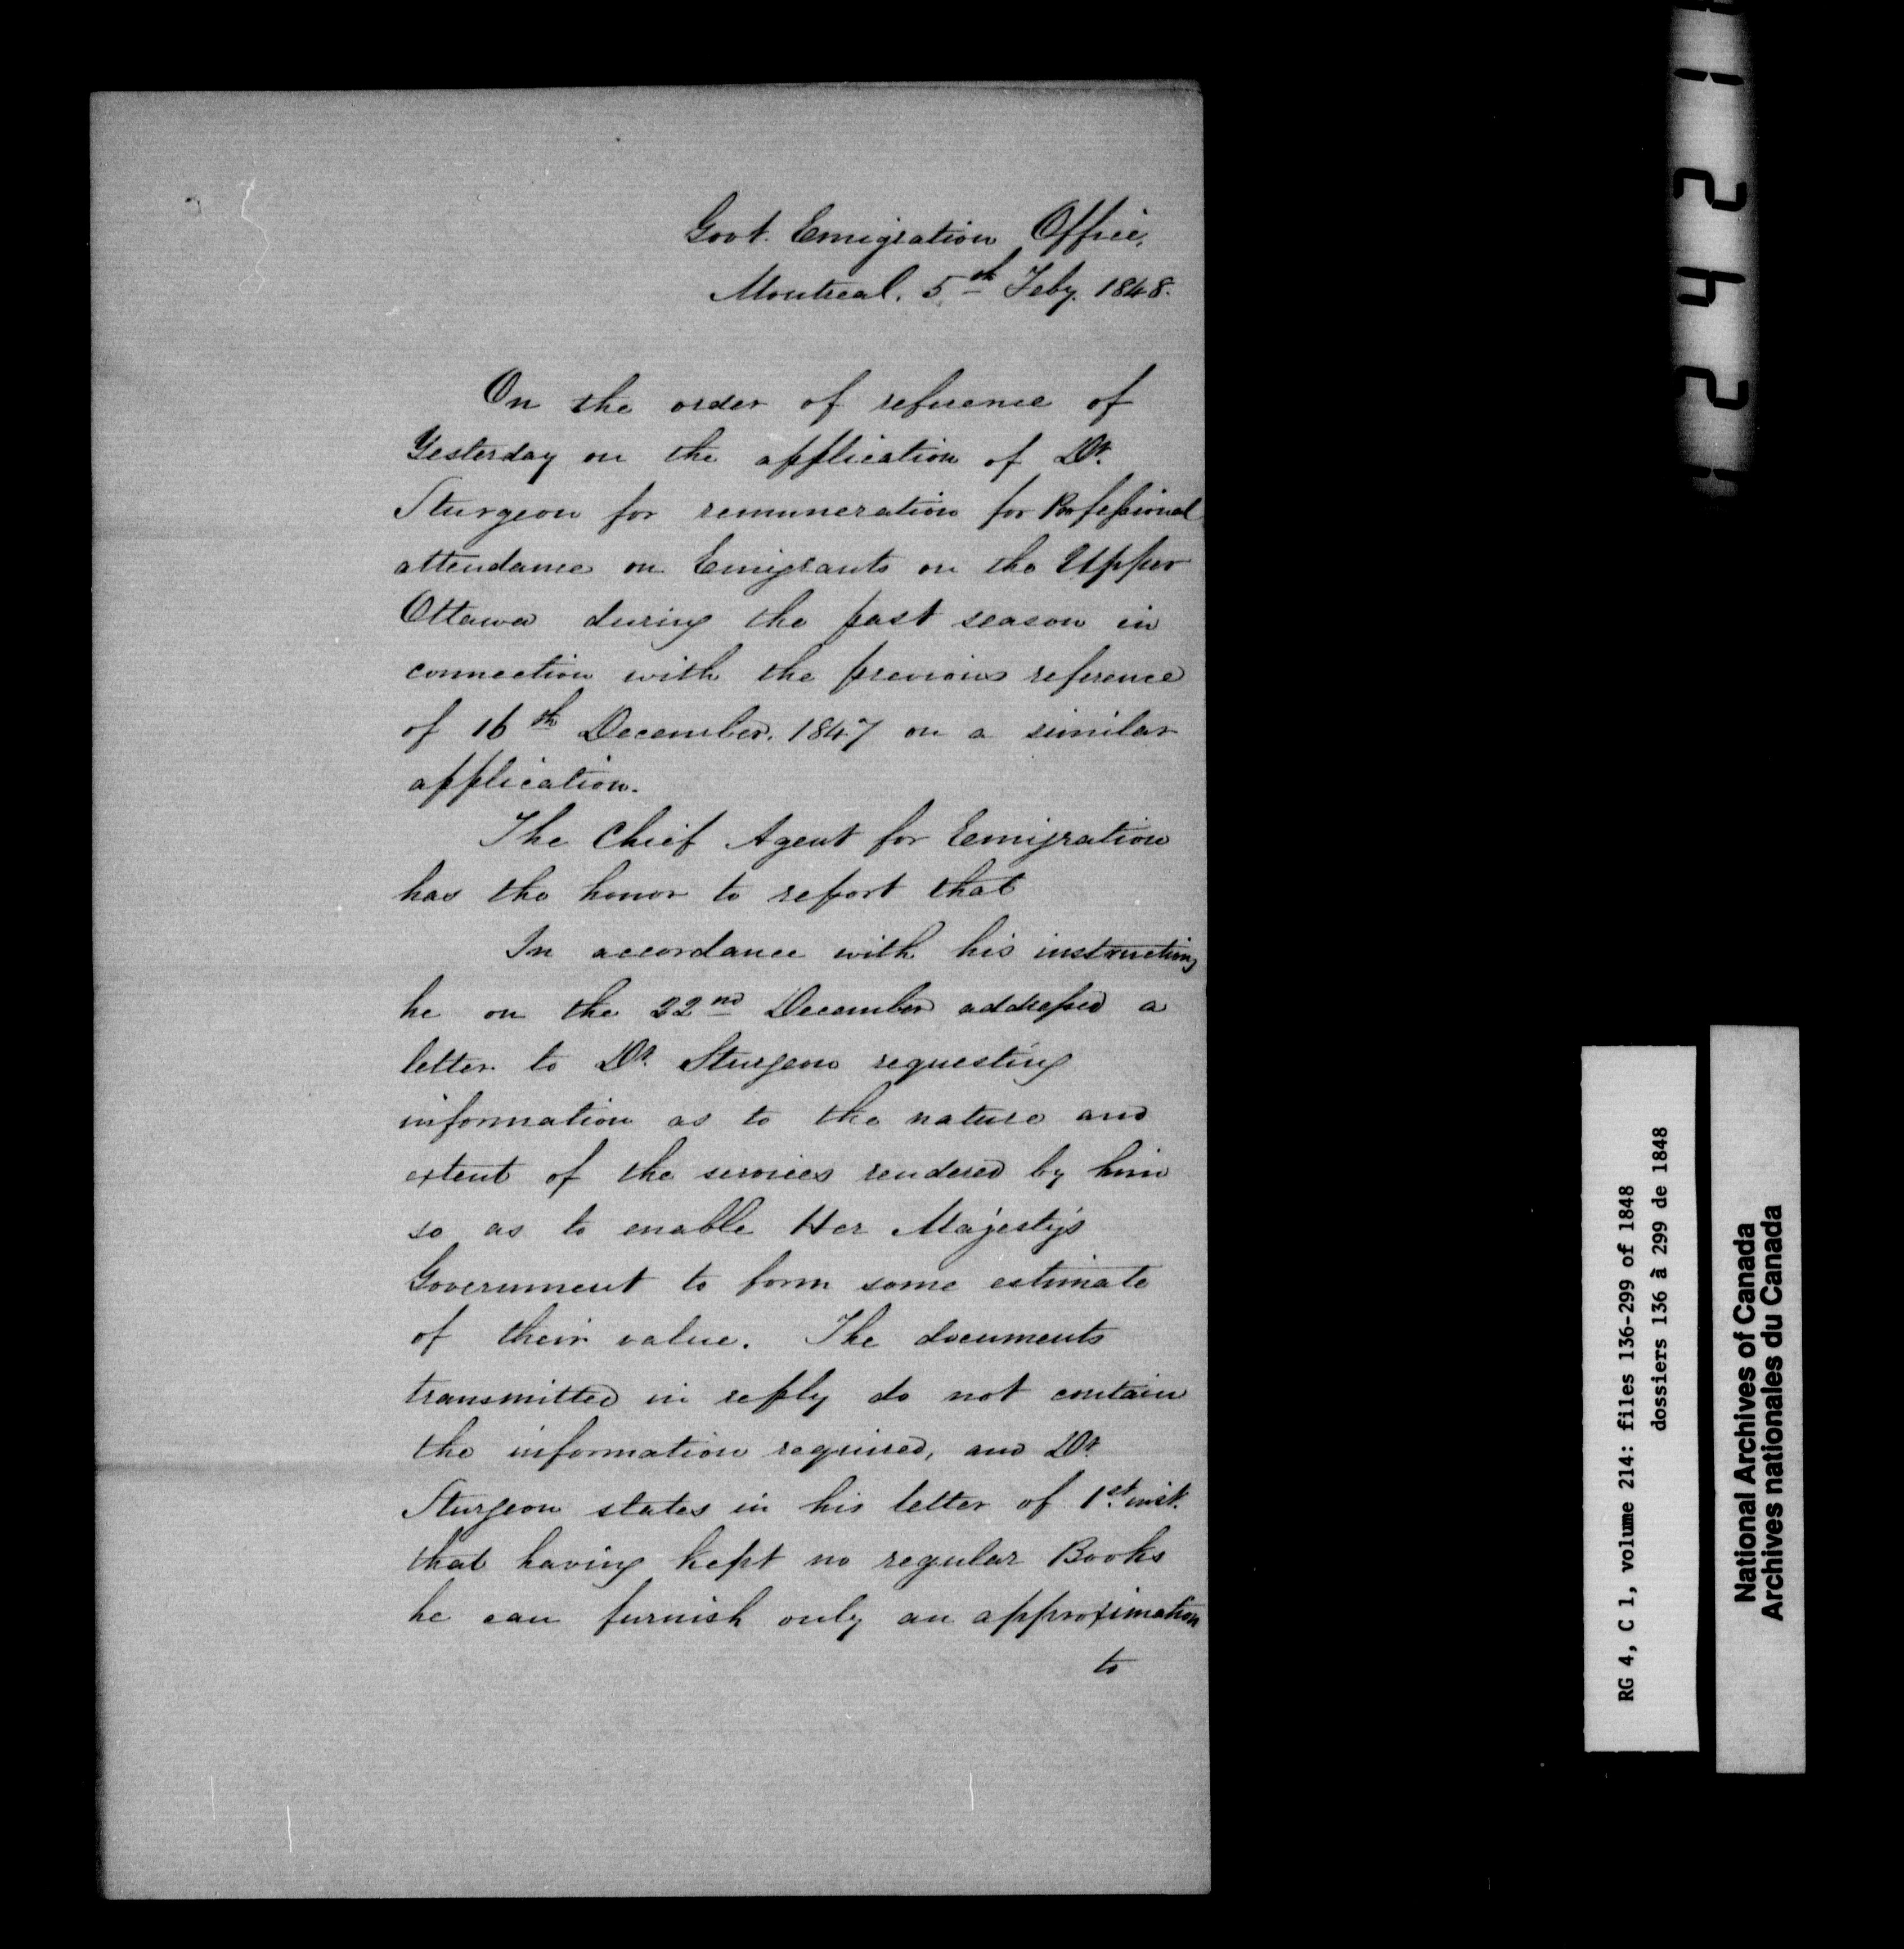 Govt. Emigration Office,
Montreal. 5th Feby. 1848.
On the order of reference of
Yesterday on the application of Dr.
Sturgeon for remuneration for Professional
attendance on Emigrants on the Upper
Ottawa during the past season in
connection with the previous reference
of 16th December. 1847 on a similar
application.
The Chief Agent for Emigration
has the honor to report that
In accordance with his instructions
he on the 22nd December addressed a
letter to Dr. Sturgeon requesting
information as to the nature and
extent of the services rendered by him
so as to enable Her Majesty's
Government to form some estimate
of their value. The documents
transmitted in reply do not contain
the information required, and Dr.
Sturgeon states in his letter of 1st. inst.
that having kept no regular Books
he can furnish only an approximation
to
1242
RG 4, C 1, volume 214: files 136-299 of 1848
dossiers 136 à 299 de 1848
National Archives of Canada
Archives nationales du Canada